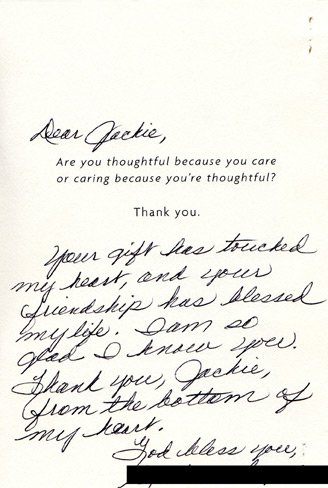 Dear Jackie,
Are you thoughtful because you care
or caring because you're thoughtful?
Thank you.
Your gift has touched
my heart, and your
friendship has blessed
my life. I am so
glad I know you.
Thank you, Jackie,
from the bottom of
my heart.
God bless you,